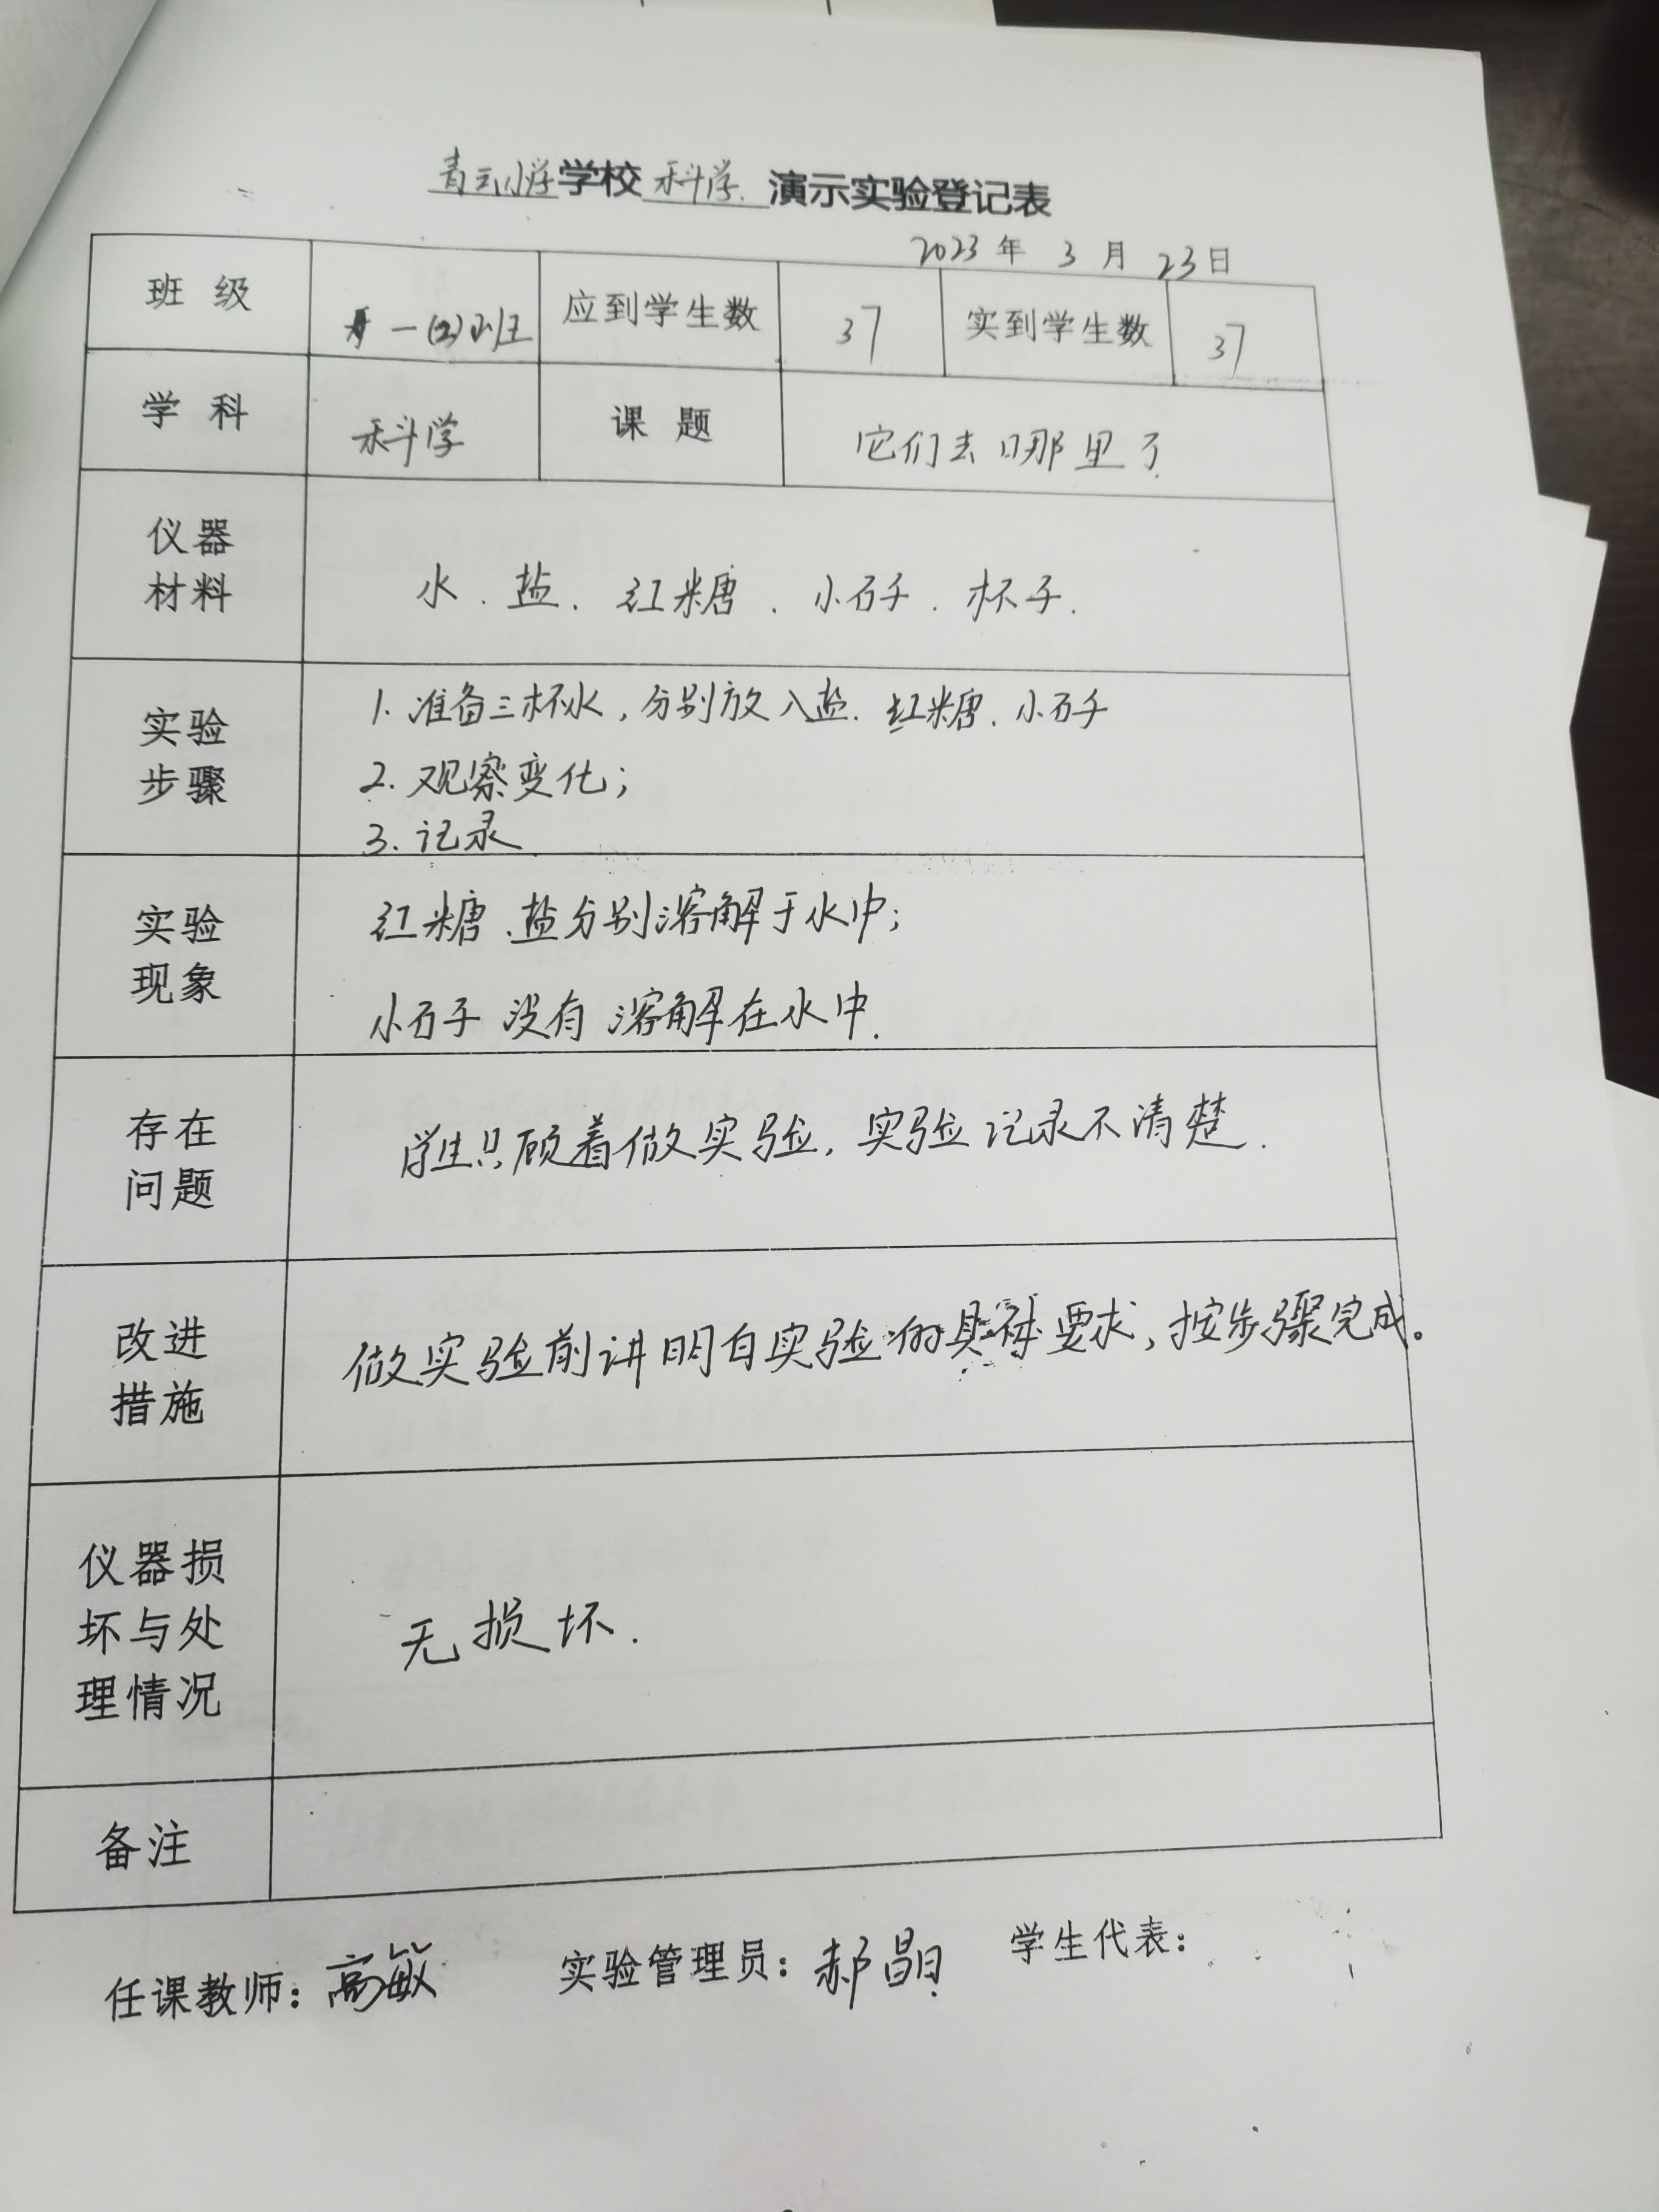 青云小学学校科学.演示实验登记表
2023年3月23日
班级 一(2)班 应到学生数 37 实到学生数 37
学科 科学 课题 它们去哪里了.
仪器材料 水.盐.红糖.小石子.杯子.
实验步骤 1.准备三杯水,分别放入盐.红糖.小石子
2.观察变化;
3.记录.
实验现象 红糖.盐分别溶解于水中;
小石子没有溶解在水中.
存在问题 学生只顾着做实验,实验记录不清楚.
改进措施 做实验前讲明白实验的具体要求,按步骤完成。
仪器损坏与处理情况 无损坏.
备注
任课教师:高敏 实验管理员:郝晶 学生代表: